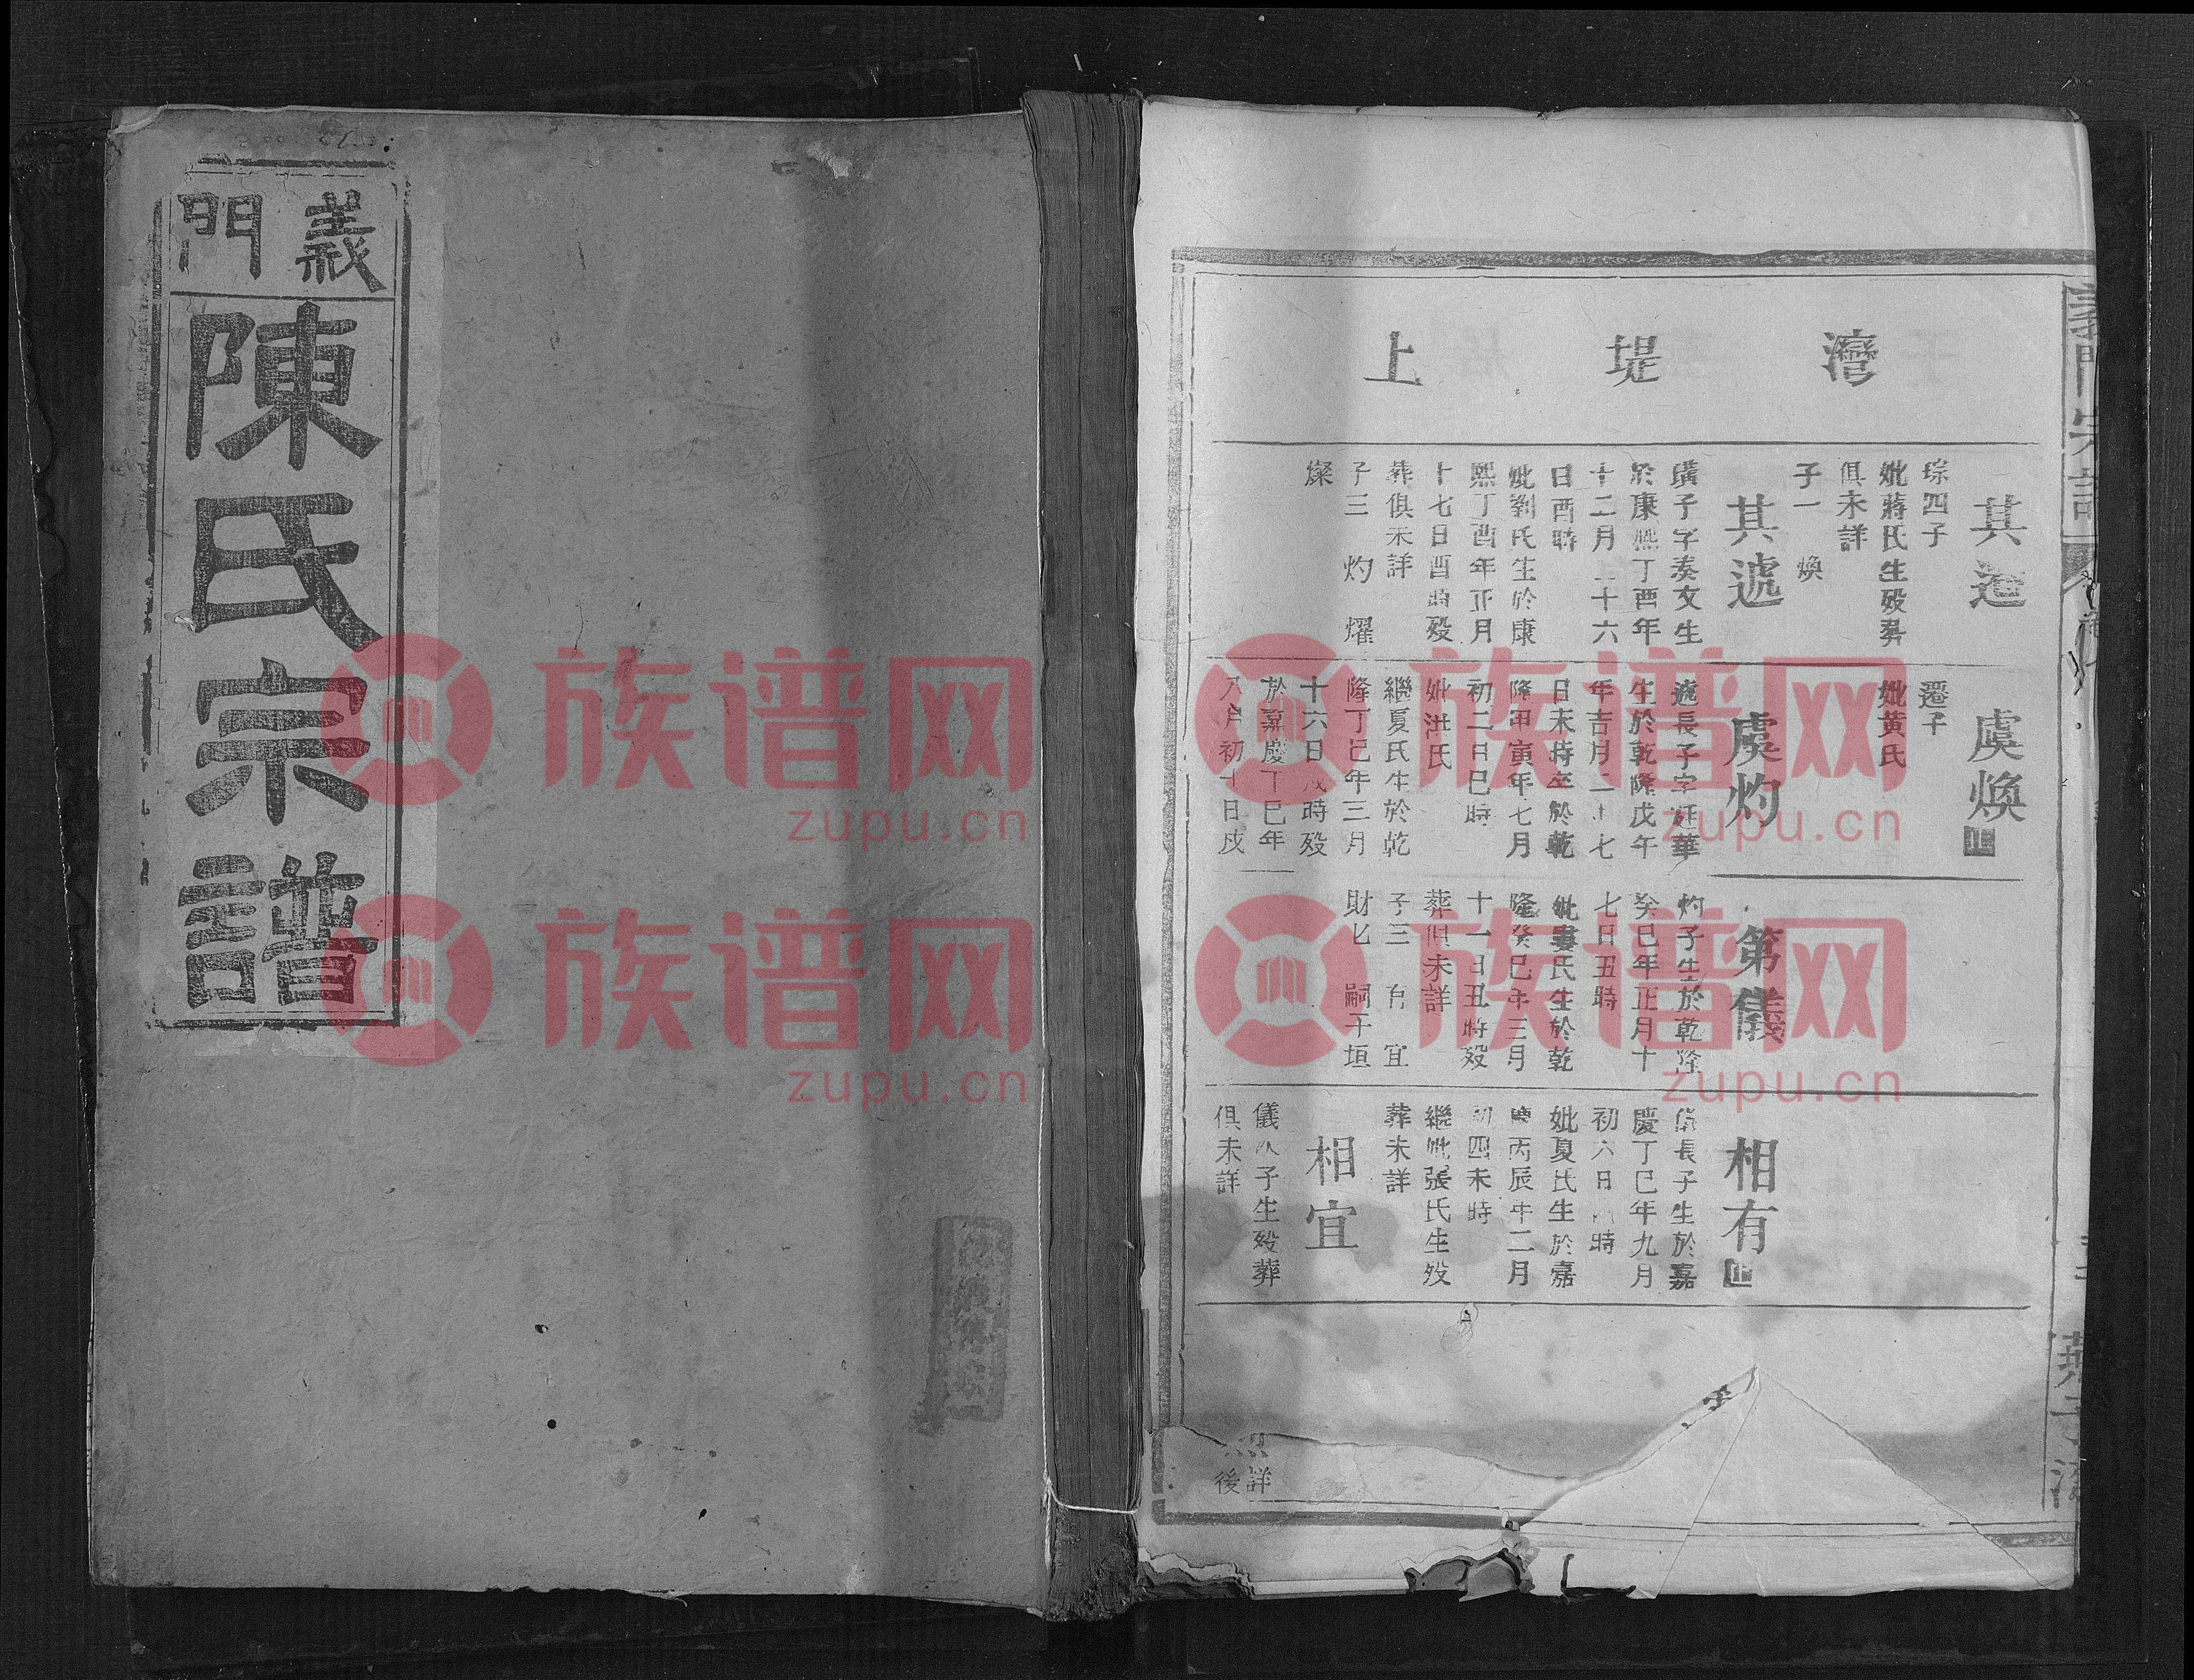 義門
陳氏宗譜
灣堤上
其遷
琮四子
妣蔣氏生殁塟
俱未詳
子一 煥
其遞
璜子字湊友生
於康熙丁酉年
十二月二十六
日酉時
妣劉氏生於康
熙丁酉年正月
十七日酉時殁
葬俱未詳
子三 灼 燿
燦
虞煥
遷子
妣黄氏
虞灼
長子字廷華
生於乾隆戊午
年吉月二十七
日未時卒於乾
隆甲寅年七月
初二日巳時
妣洪氏
繼夏氏生於乾
隆丁巳年三月
十六日戌時殁
於嘉慶丁巳年
八月初十日戌
第儀
灼子生於乾隆
癸巳年正月十
七日丑時
妣婁氏生於乾
隆癸巳年三月
十一日丑時殁
葬俱未詳
子三 有 宜
財 嗣子垣
相有
儀長子生於嘉
慶丁巳年九月
初六日 時
妣夏氏生於嘉
慶丙辰年二月
初四未時
繼妣張氏生殁
葬未詳
相宜
儀次子生殁葬
俱未詳
詳
後
義門宗譜
族谱网
zupu.cn
族谱网
zupu.cn
族谱网
zupu.cn
族谱网
zupu.cn